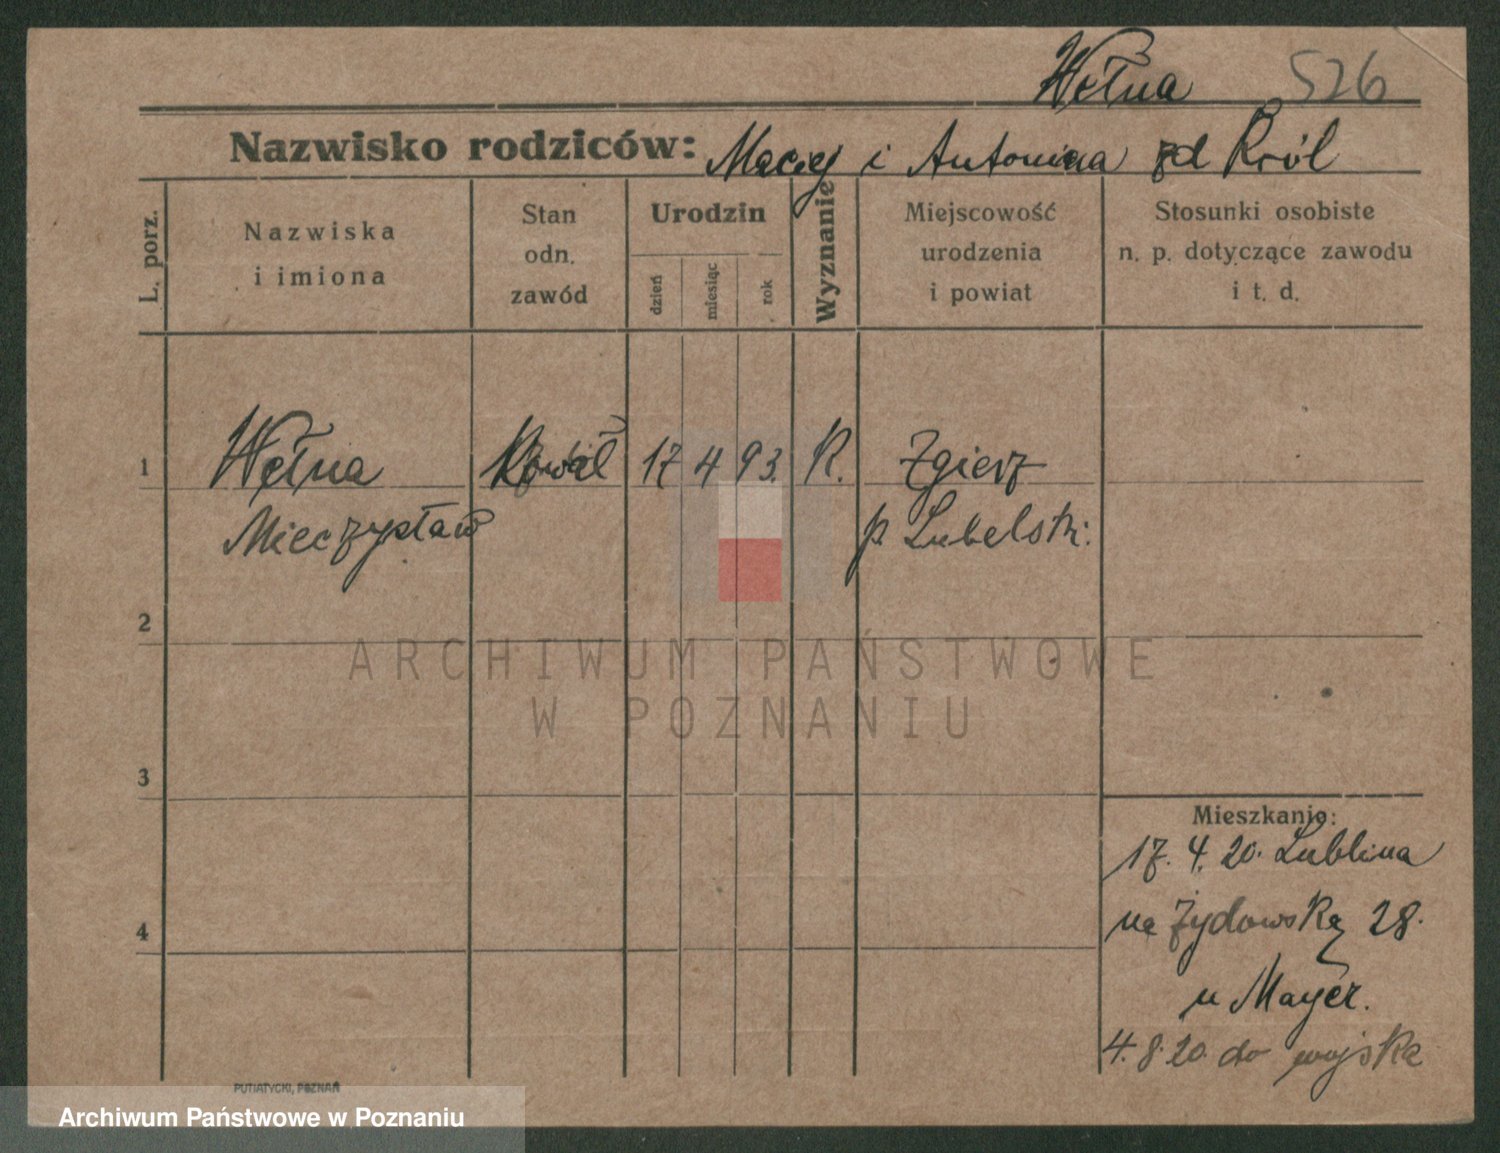 Wełna 526
Nazwisko rodziców: Maciej i Antonina zd Król
L. porz.
Nazwiska
i imiona
Stan
odn.
zawód
Urodzin
dzień
miesiąc
rok
Wyznanie
Miejscowość
urodzenia
i powiat
Stosunki osobiste
n. p. dotyczące zawodu
i t. d.
1 Wełna Kowal 17 4 93. R. Zgierz
Mieczysław p. Lubelski.
2
3
4
Mieszkanie:
17. 4. 20. Lublina
na Żydowską 28.
u Mayer.
4. 8. 20. do wojska
PUTIATYCKI, POZNAŃ
ARCHIWUM PAŃSTWOWE
W POZNANIU
Archiwum Państwowe w Poznaniu